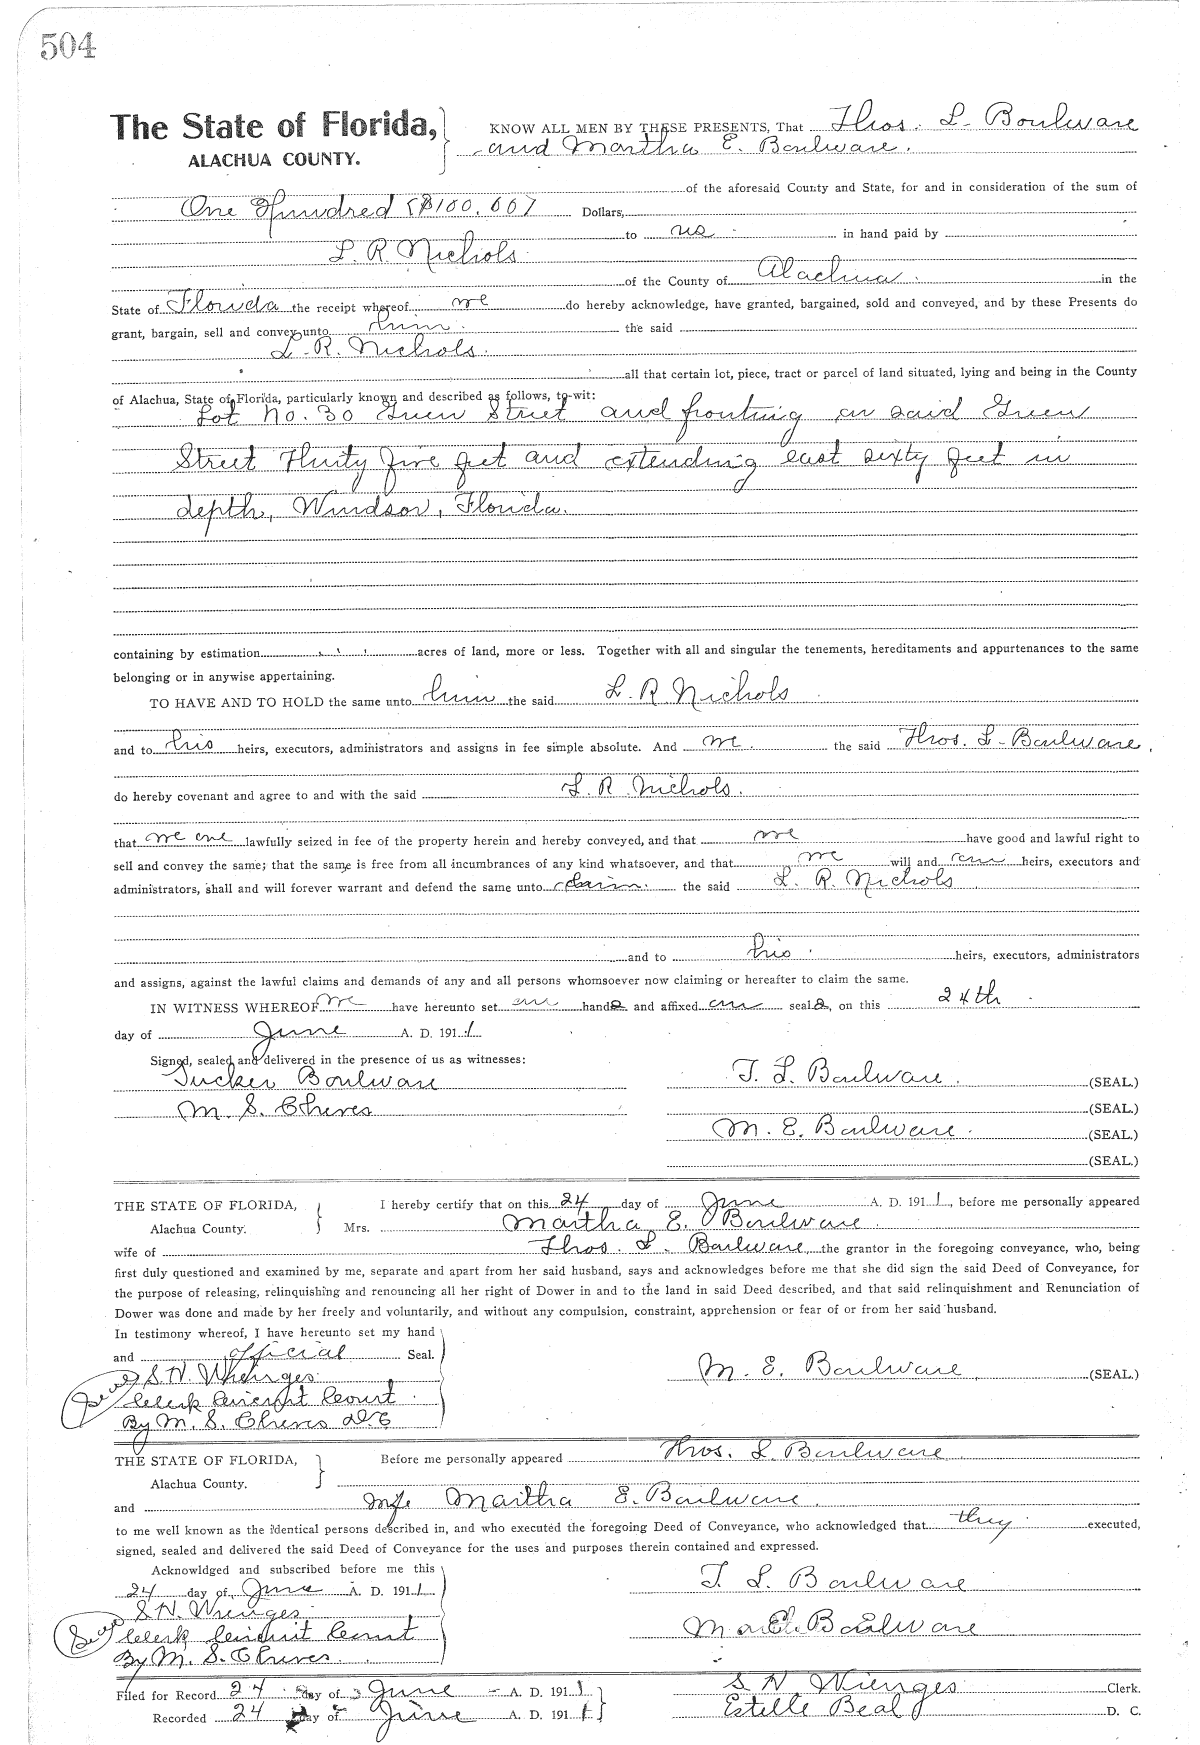 504
The State of Florida, KNOW ALL MEN BY THESE PRESENTS, That Thos. L. Boulware
ALACHUA COUNTY. and Martha E. Boulware.
of the aforesaid County and State, for and in consideration of the sum of
One Hundred ($100.00) Dollars,
to us in hand paid by
L. R. Nichols
of the County of Alachua in the
State of Florida the receipt whereof we do hereby acknowledge, have granted, bargained, sold and conveyed, and by these Presents do
grant, bargain, sell and convey unto him the said
L. R. Nichols.
all that certain lot, piece, tract or parcel of land situated, lying and being in the County
of Alachua, State of Florida, particularly known and described as follows, to-wit:
Lot No. 30 Green Street and fronting on said Green
Street Thirty five feet and extending east sixty feet in
depth, Windsor, Florida.
containing by estimation acres of land, more or less. Together with all and singular the tenements, hereditaments and appurtenances to the same
belonging or in anywise appertaining.
TO HAVE AND TO HOLD the same unto him the said L. R. Nichols
and to his heirs, executors, administrators and assigns in fee simple absolute. And we the said Thos. L. Boulware,
do hereby covenant and agree to and with the said L. R. Nichols.
that we are lawfully seized in fee of the property herein and hereby conveyed, and that we have good and lawful right to
sell and convey the same; that the same is free from all incumbrances of any kind whatsoever, and that we will and our heirs, executors and
administrators, shall and will forever warrant and defend the same unto the said L. R. Nichols
and to his heirs, executors, administrators
and assigns, against the lawful claims and demands of any and all persons whomsoever now claiming or hereafter to claim the same.
IN WITNESS WHEREOF we have hereunto set our hands and affixed our seals, on this 24th
day of June A. D. 1911
Signed, sealed and delivered in the presence of us as witnesses:
Tucker Boulware T. L. Boulware. (SEAL.)
M. S. Cheves (SEAL.)
M. E. Boulware. (SEAL.)
(SEAL.)
THE STATE OF FLORIDA, I hereby certify that on this 24 day of June A. D. 1911, before me personally appeared
Alachua County. Mrs. Martha E. Boulware
wife of Thos. L. Boulware, the grantor in the foregoing conveyance, who, being
first duly questioned and examined by me, separate and apart from her said husband, says and acknowledges before me that she did sign the said Deed of Conveyance, for
the purpose of releasing, relinquishing and renouncing all her right of Dower in and to the land in said Deed described, and that said relinquishment and Renunciation of
Dower was done and made by her freely and voluntarily, and without any compulsion, constraint, apprehension or fear of or from her said husband.
In testimony whereof, I have hereunto set my hand
and official Seal.
Seal S. H. Wienges. M. E. Boulware (SEAL)
Clerk Circuit Court.
By M. S. Cheves D.C.
THE STATE OF FLORIDA, Before me personally appeared Thos. L. Boulware
Alachua County.
and wife Martha E. Boulware
to me well known as the identical persons described in, and who executed the foregoing Deed of Conveyance, who acknowledged that they executed,
signed, sealed and delivered the said Deed of Conveyance for the uses and purposes therein contained and expressed.
Acknowldged and subscribed before me this
24 day of June A. D. 1911 T. L. Boulware
S. H. Wienges
Seal Clerk Circuit Court M. E. Boulware
By M. S. Cheves.
Filed for Record 24 day of June A. D. 1911 S H Wienges Clerk.
Recorded 24 day of June A. D. 1911 Estelle Beal D. C.